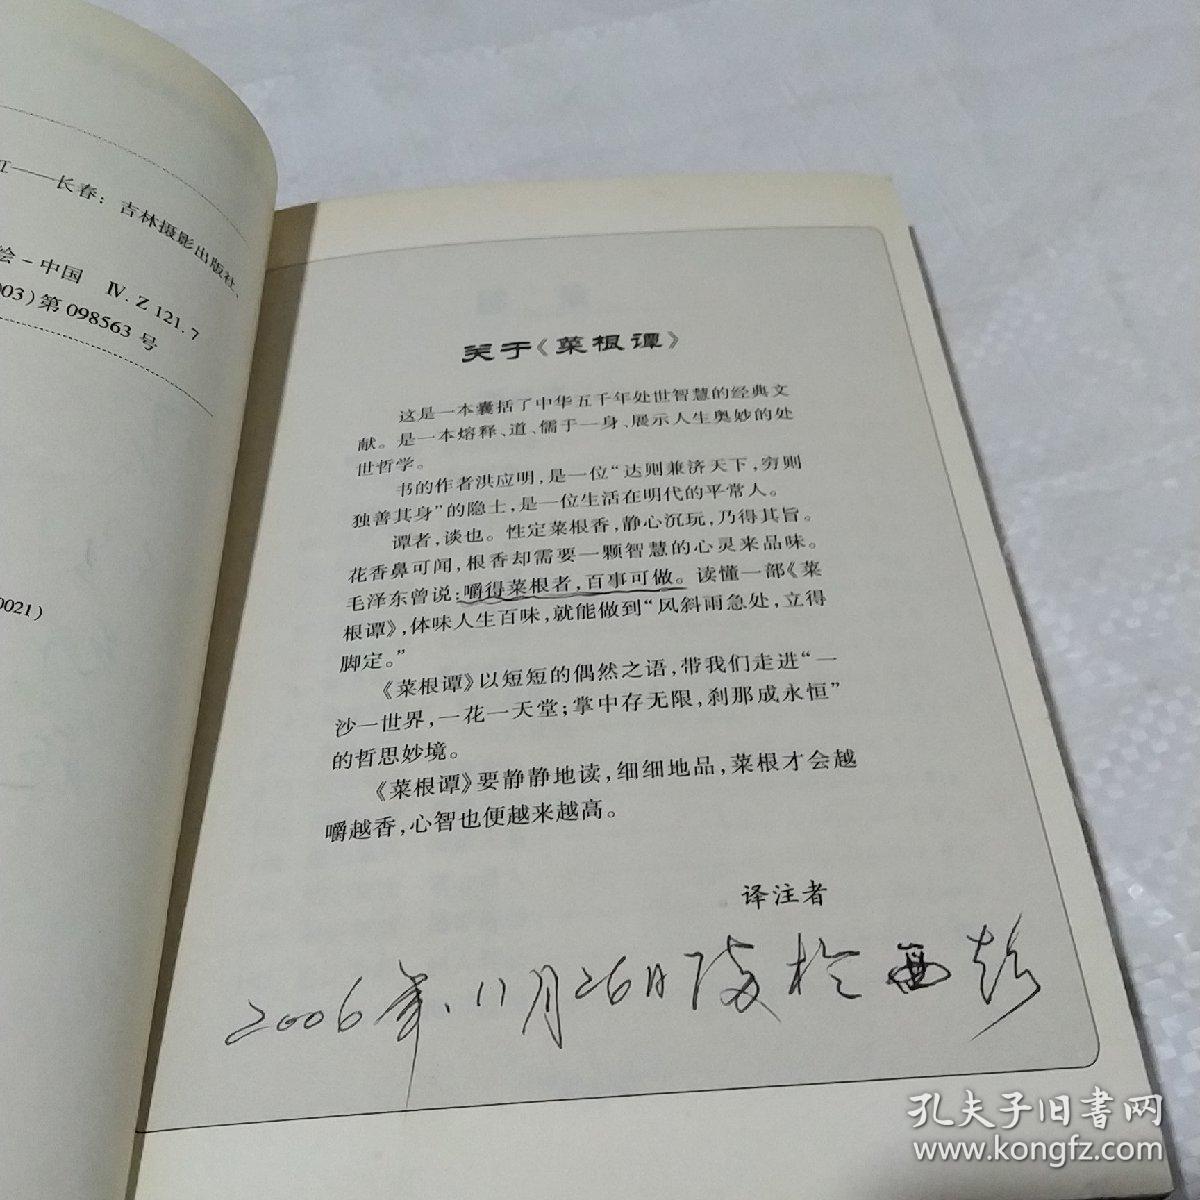 ——长春：吉林摄影出版社、
绘－中国 Ⅳ.Z121.7
003）第098563号
0021）
关于《菜根谭》
这是一本囊括了中华五千年处世智慧的经典文
献。是一本熔释、道、儒于一身、展示人生奥妙的处
世哲学。
书的作者洪应明，是一位“达则兼济天下，穷则
独善其身”的隐士，是一位生活在明代的平常人。
谭者，谈也。性定菜根香，静心沉玩，乃得其旨。
花香鼻可闻，根香却需要一颗智慧的心灵来品味。
毛泽东曾说：嚼得菜根者，百事可做。读懂一部《菜
根谭》，体味人生百味，就能做到“风斜雨急处，立得
脚定。”
《菜根谭》以短短的偶然之语，带我们走进“一
沙一世界，一花一天堂；掌中存无限，刹那成永恒”
的哲思妙境。
《菜根谭》要静静地读，细细地品，菜根才会越
嚼越香，心智也便越来越高。
译注者
2006年.11月26日 西彭
孔夫子旧书网
www.kongfz.com